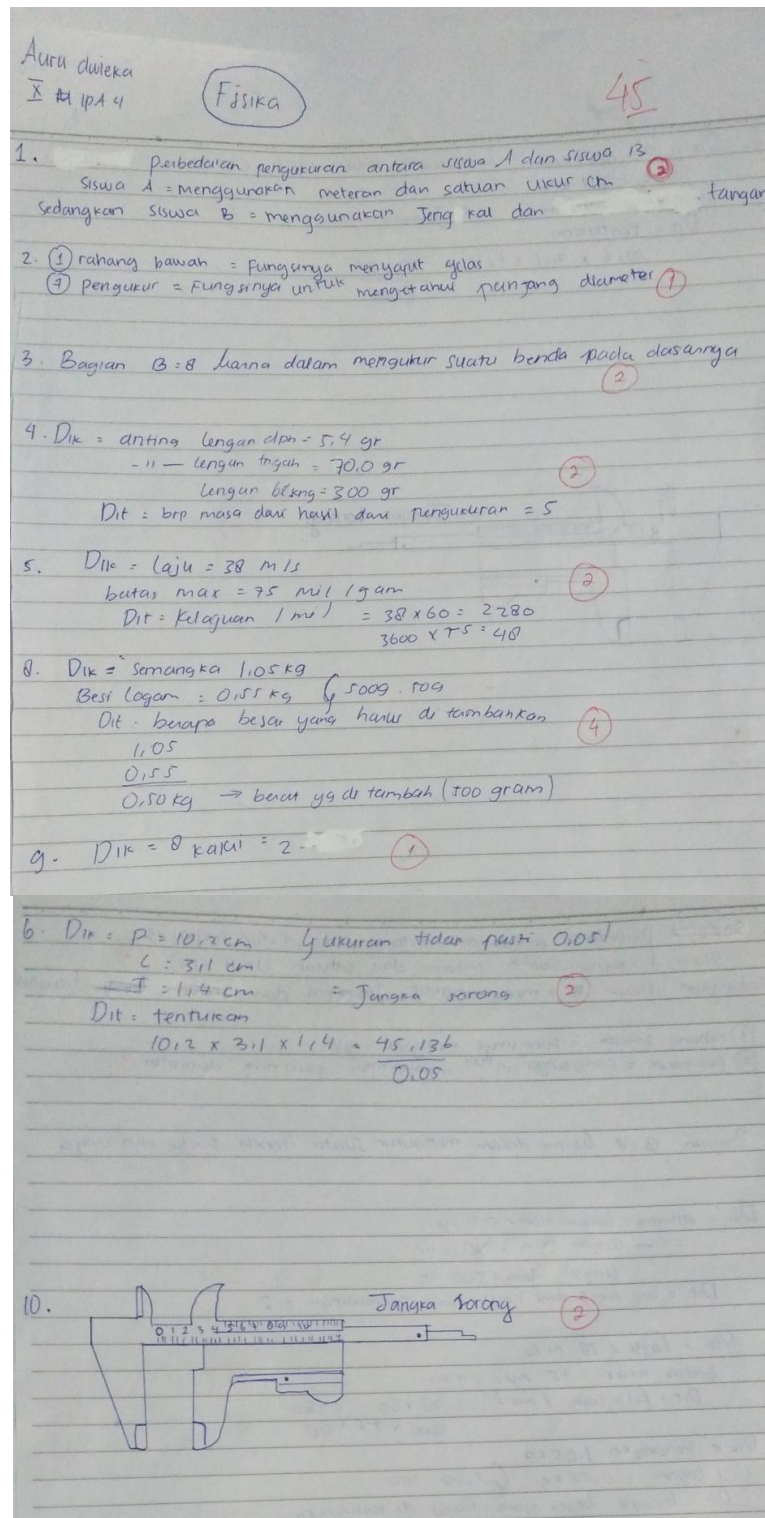 Aura dwieka
X IPA 4
Fisika
45
1. Perbedaian pengukuran antara siswa A dan siswa B
2
siswa A = menggunakan meteran dan satuan ukur cm
Sedangkan siswa B = menggunakan Jeng kal dan tangan
2. 1 rahang bawah = Fungsinya menyaput gelas
7 pengukur = Fungsinya untuk mengetahui panjang diameter
7
3. Bagian B = 8 karna dalam mengukur suatu benda pada dasarnya
2
4. Dik = anting lengan dpn = 5,4 gr
- " - lengan tngah = 70,0 gr
2
lengan blkng = 300 gr
Dit = brp masa dari hasil dari pengukuran = 5
5. Dik = laju = 38 m/s
batas max = 75 mil / jam
2
Dit = Kelajuan / mil = 38 x 60 = 2280
3600 x 75 = 48
8. Dik = Semangka 1,05 kg
Besi logam = 0,55 kg 500g . 50g
Dit = berapa besar yang harus di tambahkan
4
1,05
0,55
0,50 kg → berat yg di tambah (500 gram)
9. Dik = 8 kaki = 2.
1
6. Dik = P = 10,2 cm ukuran tidak pasti 0,05
L = 3,1 cm
T = 1,4 cm = Jangka sorong
2
Dit = tentukan
10,2 x 3,1 x 1,4 = 45,136
0.05
10. Jangka sorong
2
0 1 2 3 4 5 6 7 8